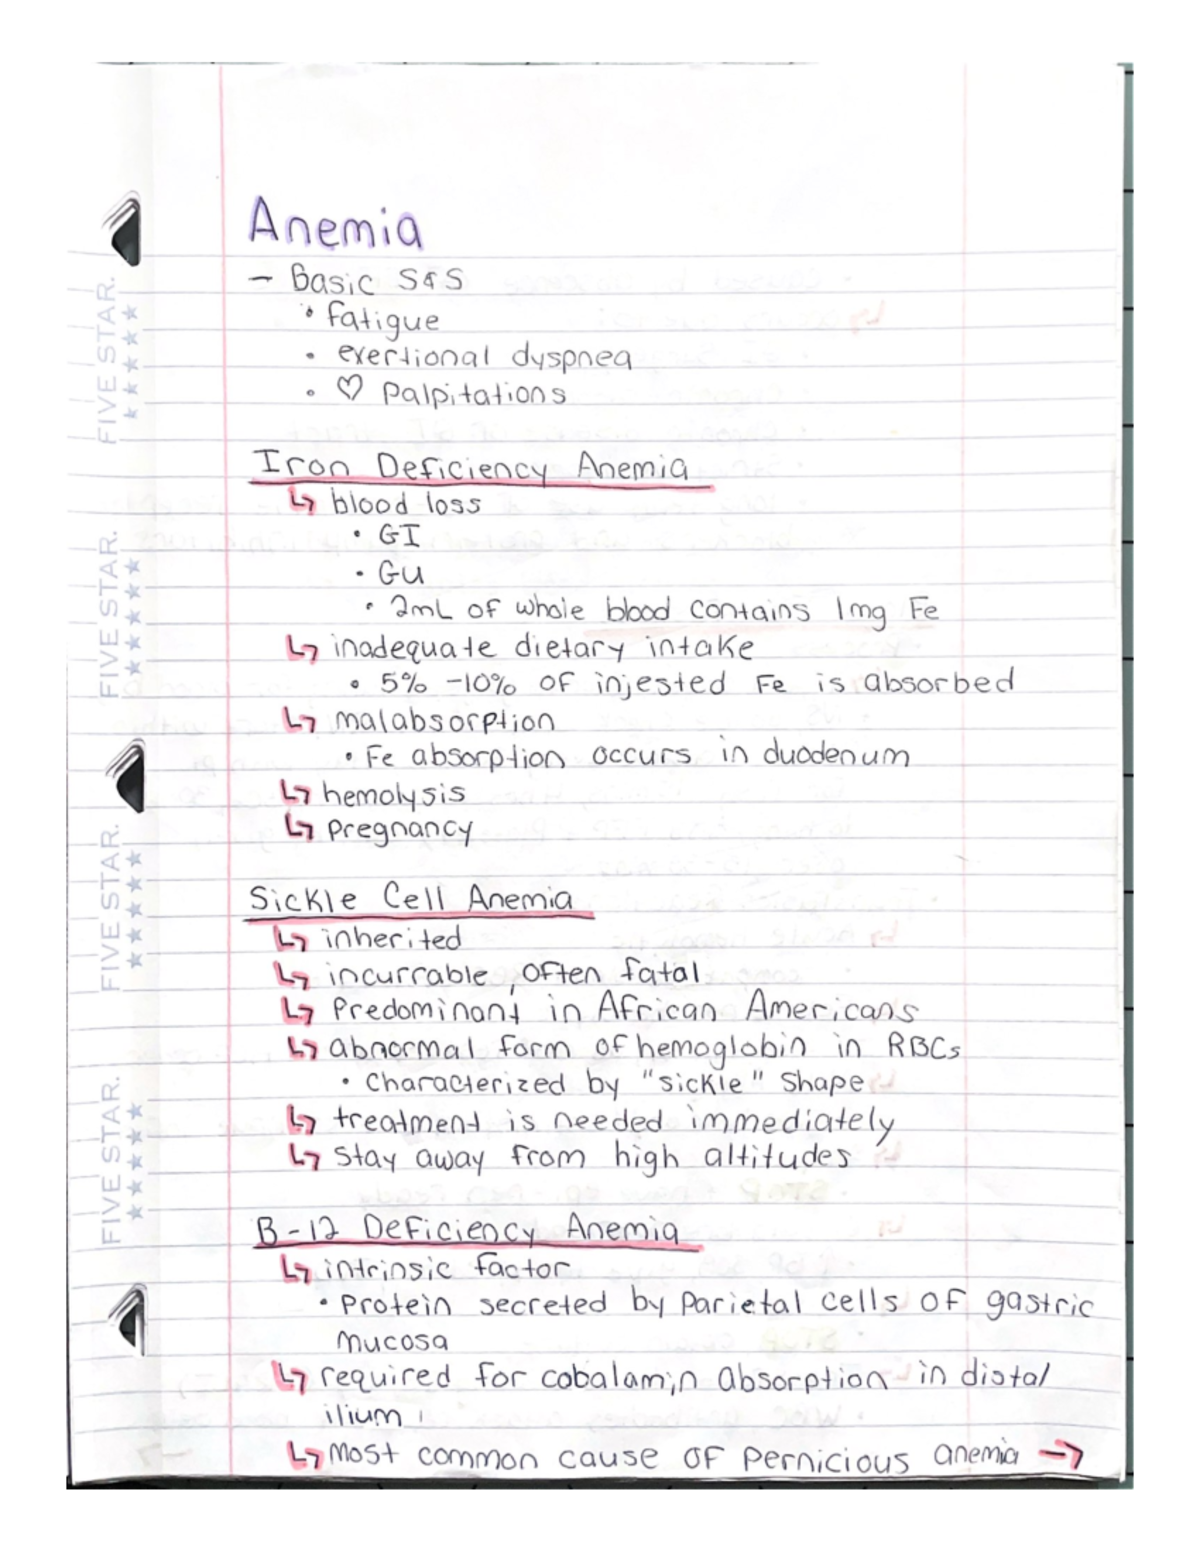 Anemia
- Basic S&S
• fatigue
• exertional dyspnea
• ♡ Palpitations
Iron Deficiency Anemia
↳ blood loss
• GI
• GU
• 2mL of whole blood contains 1mg Fe
↳ inadequate dietary intake
• 5% -10% of injested Fe is absorbed
↳ malabsorption
• Fe absorption occurs in duodenum
↳ hemolysis
↳ pregnancy
Sickle Cell Anemia
↳ inherited
↳ incurrable, often fatal
↳ Predominant in African Americans
↳ abnormal form of hemoglobin in RBCs
• Characterized by "sickle" shape
↳ treatment is needed immediately
↳ stay away from high altitudes
B-12 Deficiency Anemia
↳ intrinsic factor
• Protein secreted by parietal cells of gastric
mucosa
↳ required for cobalamin absorption in distal
ilium
↳ Most common cause of pernicious anemia →
FIVE STAR.
FIVE STAR.
FIVE STAR.
FIVE STAR.